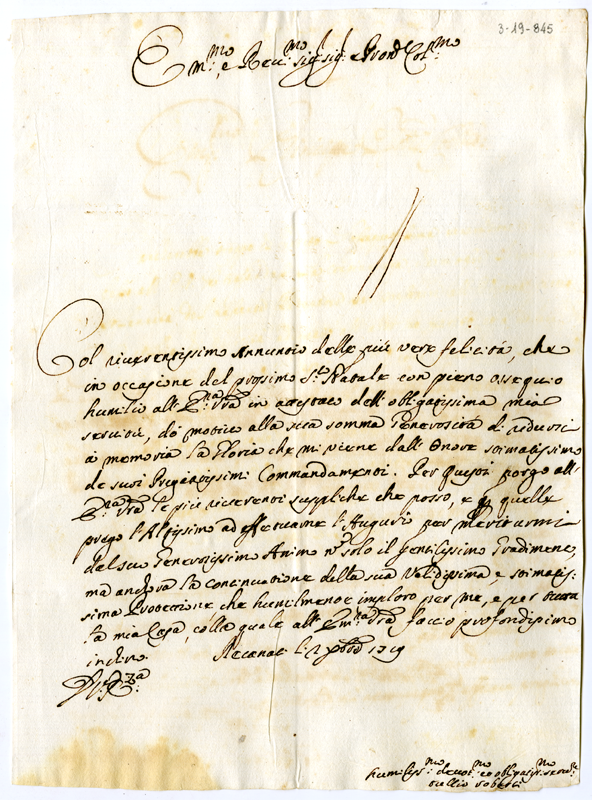 3-19-845
Em.mo e Rev.mo Sig: Sig: e Pron Col.mo
Col riverentissimo Annuntio delle più vere felicità, che
in occasione del prossimo S.to Natale con pieno ossequio
humilio all' Em.za V'ra in attestato dell' obligatissima mia
servitù, dò motivo alla sua somma Generosità di ridursi
à memoria la Gloria che mi viene dall' Onore stimatissimo
de suoi Pregiatissimi Commandamenti. Per questi porgo all'
Em.za V'ra le più riverenti suppliche che posso, e quelle
prego l'Altissimo ad effettuarne l'Augurio per meritarmi
dal suo Generosissimo Animo nō solo il gentilissimo Gradimento,
ma anchora la continuatione della sua Validissima e stimatis:
sima Protettione che humilmente imploro per me, e per tutta
la mia Casa, colla quale all' Em.za V'ra faccio profondissimo
inchino. Recanati li 2 Xbre 1719
humiliss.mo devot.mo ed obligatiss.mo